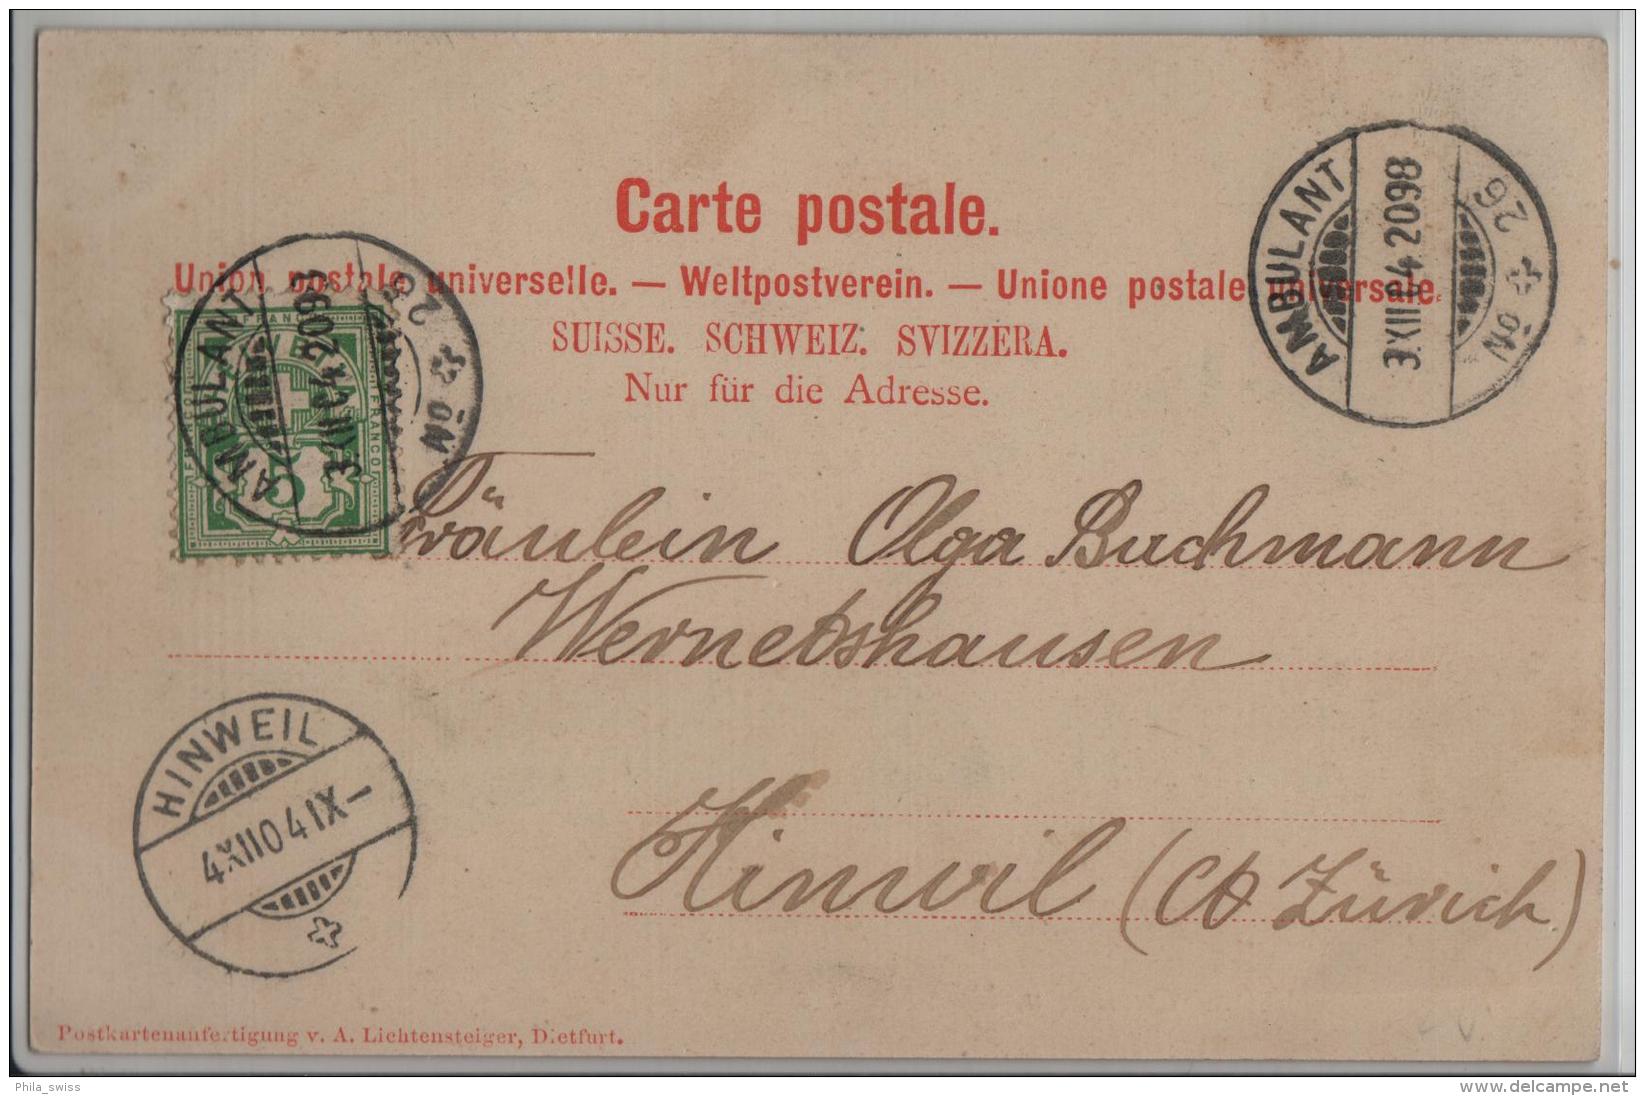 Carte postale.
Union postale universelle. — Weltpostverein. — Unione postale universale.
SUISSE. SCHWEIZ. SVIZZERA.
Nur für die Adresse.
AMBULANT
3.XII.04 2098
No 26
AMBULANT
3.XII.04
No 26
FRANCO
FRANCO
5
Fräulein Olga Bachmann
Wernetshausen
Hinwil (Ct Zürich)
HINWEIL
4.XII.04 IX–
Postkartenanfertigung v. A. Lichtensteiger, Dietfurt.
Phila_swiss
www.delcampe.net